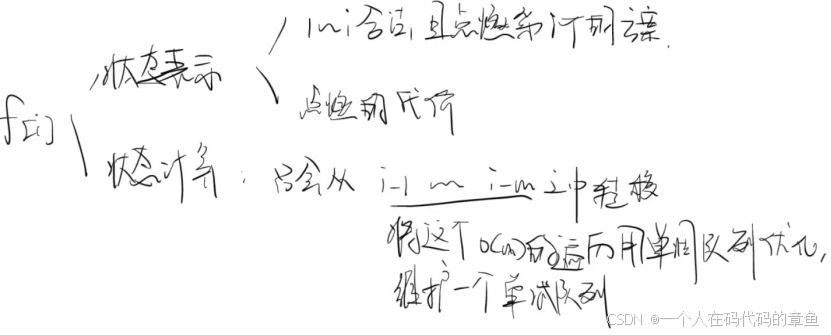 f[i]
状态表示
1~i合法,且点燃第i个的方案.
点燃的代价
状态计算:只会从 i-1 ~ i-m 之中转移
将这个O(m)的遍历用单调队列优化,
维护一个单减队列
CSDN @一个人在码代码的章鱼